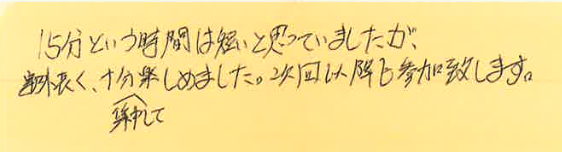 15分という時間は短いと思っていましたが、
案外長く、十分楽しめました。次回以降も参加致します。
集中して